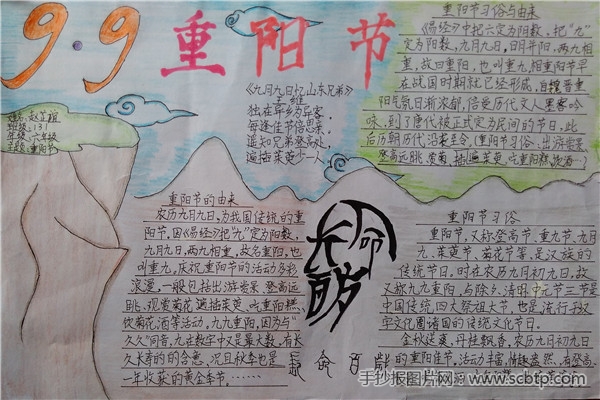 9.9重阳节
姓名:
班级:(3)
年级:六年级
主题:重阳节
《九月九日忆山东兄弟》
王维
独在异乡为异客,
每逢佳节倍思亲。
遥知兄弟登高处,
遍插茱萸少一人。
重阳节习俗与由来
《易经》中把六定为阴数,把“九”
定为阳数,九月九日,日月并阳,两九相
重,故曰重阳,也叫重九,相重阳节早
在战国时期就已经形成,自魏晋重
阳气氛日渐浓郁,倍受历代文人墨客吟
咏,到了唐代被正式定为民间的节日,此
后历朝历代沿袭至今,(重阳节习俗:出游赏景、
登高远眺、赏菊、插遍茱萸、吃重阳糕、饮酒…)
重阳节的由来
农历九月九日,为我国传统的重
阳节,因《易经》把“九”定为阳数,
九月九日,两九相重,故名重阳,也
叫重九,庆祝重阳节的活动多彩
浪漫,一般包括出游赏景、登高远
眺、观赏菊花、遍插茱萸、吃重阳糕、
饮菊花酒等活动,九九重阳,因为与“
久久”同音,九在数字中又是最大数,有长
久长寿的的含意,况且秋季也是
一年收获的黄金季节……
长命百岁
长命百岁
重阳节习俗
重阳节,又称登高节、重九节、九月
九、茱萸节、菊花节等,是汉族的
传统节日,时在农历九月初九日,故
又称九九重阳,与除夕、清明、中元节三节是
中国传统四大祭祖大节,也是流行于汉
字文化圈诸国的传统文化节日。
金秋送爽,丹桂飘香,农历九月初九日
的重阳佳节,活动丰富,情趣盎然,有登高、
手抄报图片网 www.scbtp.com